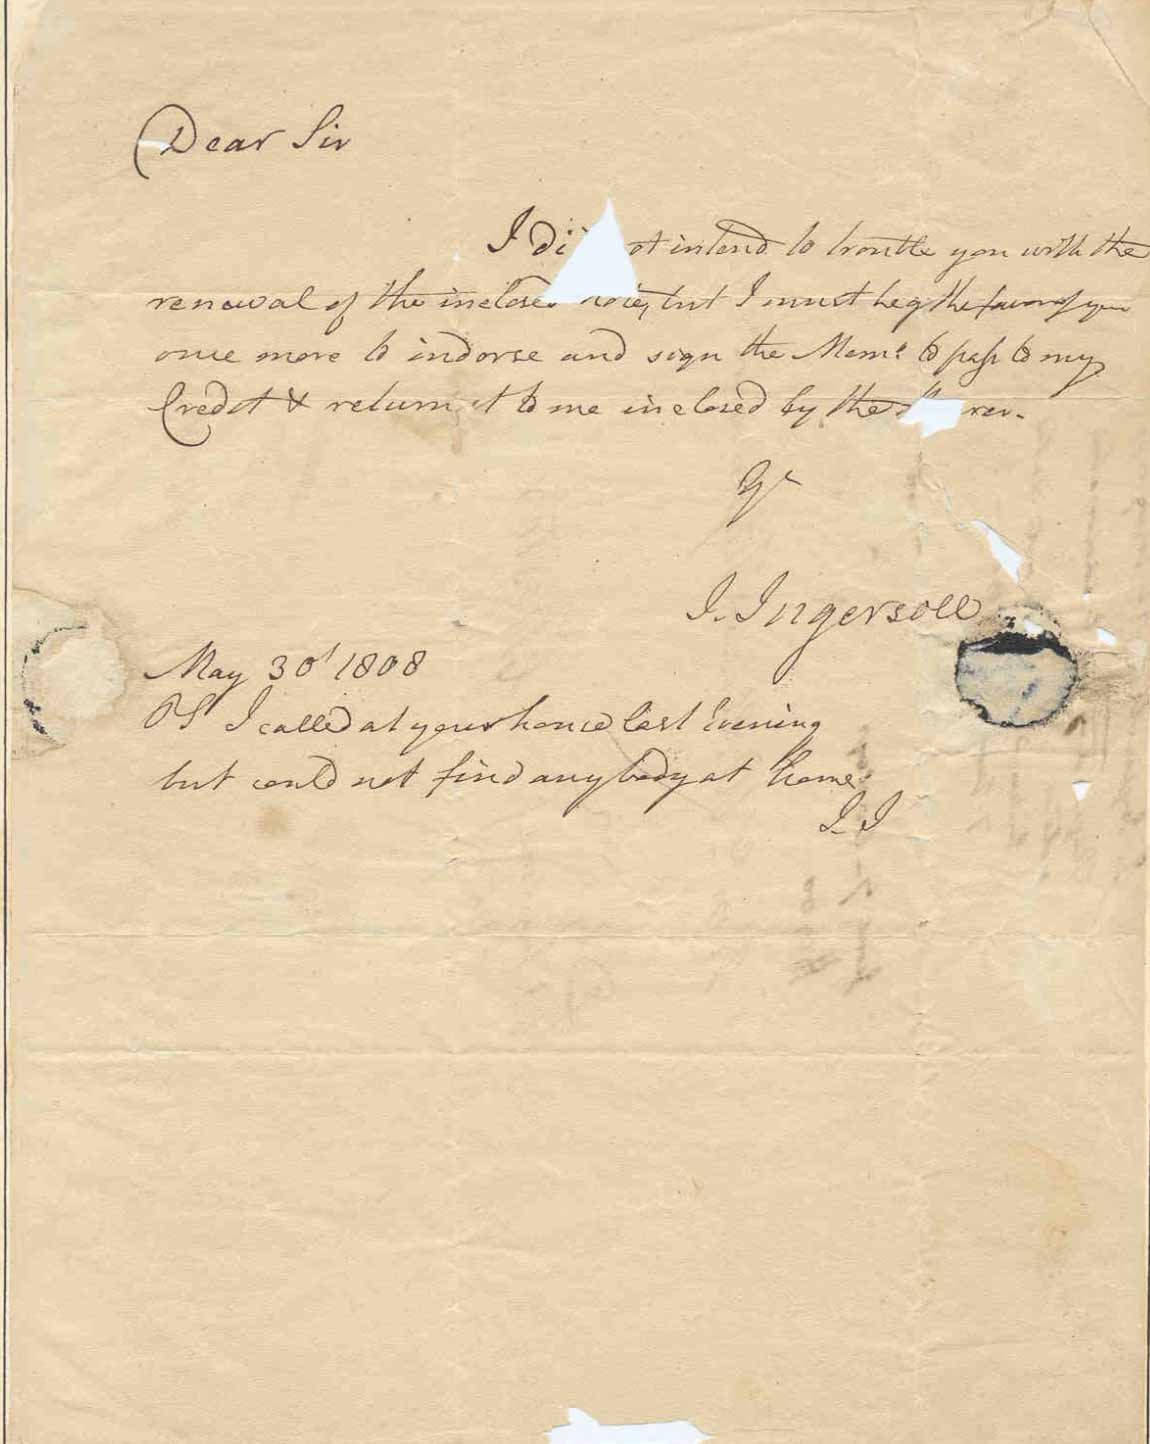 Dear Sir
I di ot intend to trouble you with the
renewal of the inclosed note, but I must beg the favor of you
once more to indorse and sign the Memo to pass to my
Credit & return it to me inclosed by the rer.
Yr
J. Ingersoll
May 30th 1808
PS I called at your house last Evening
but could not find any body at home.
J. I